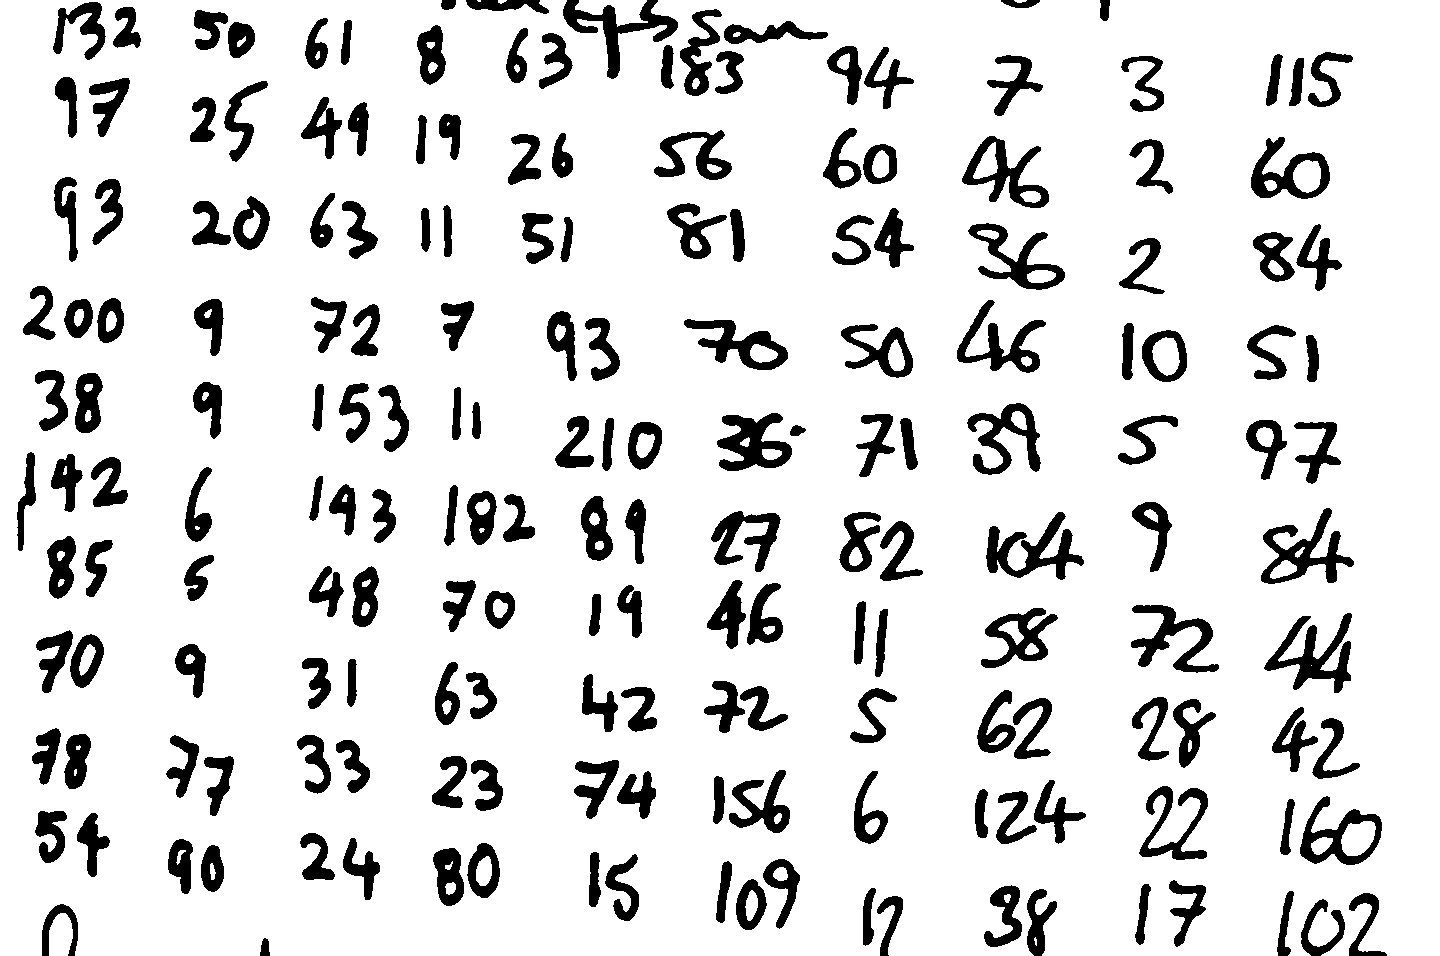 Sam
132 50 61 8 63 183 94 7 3 115
97 25 49 19 26 56 60 46 2 60
93 20 63 11 51 81 54 36 2 84
200 9 72 7 93 70 50 46 10 51
38 9 153 11 210 36 71 39 5 97
142 6 143 182 89 27 82 104 9 84
85 5 48 70 19 46 11 58 72 44
70 9 31 63 42 72 5 62 28 42
78 77 33 23 74 156 6 124 22 160
54 90 24 80 15 109 12 38 17 102